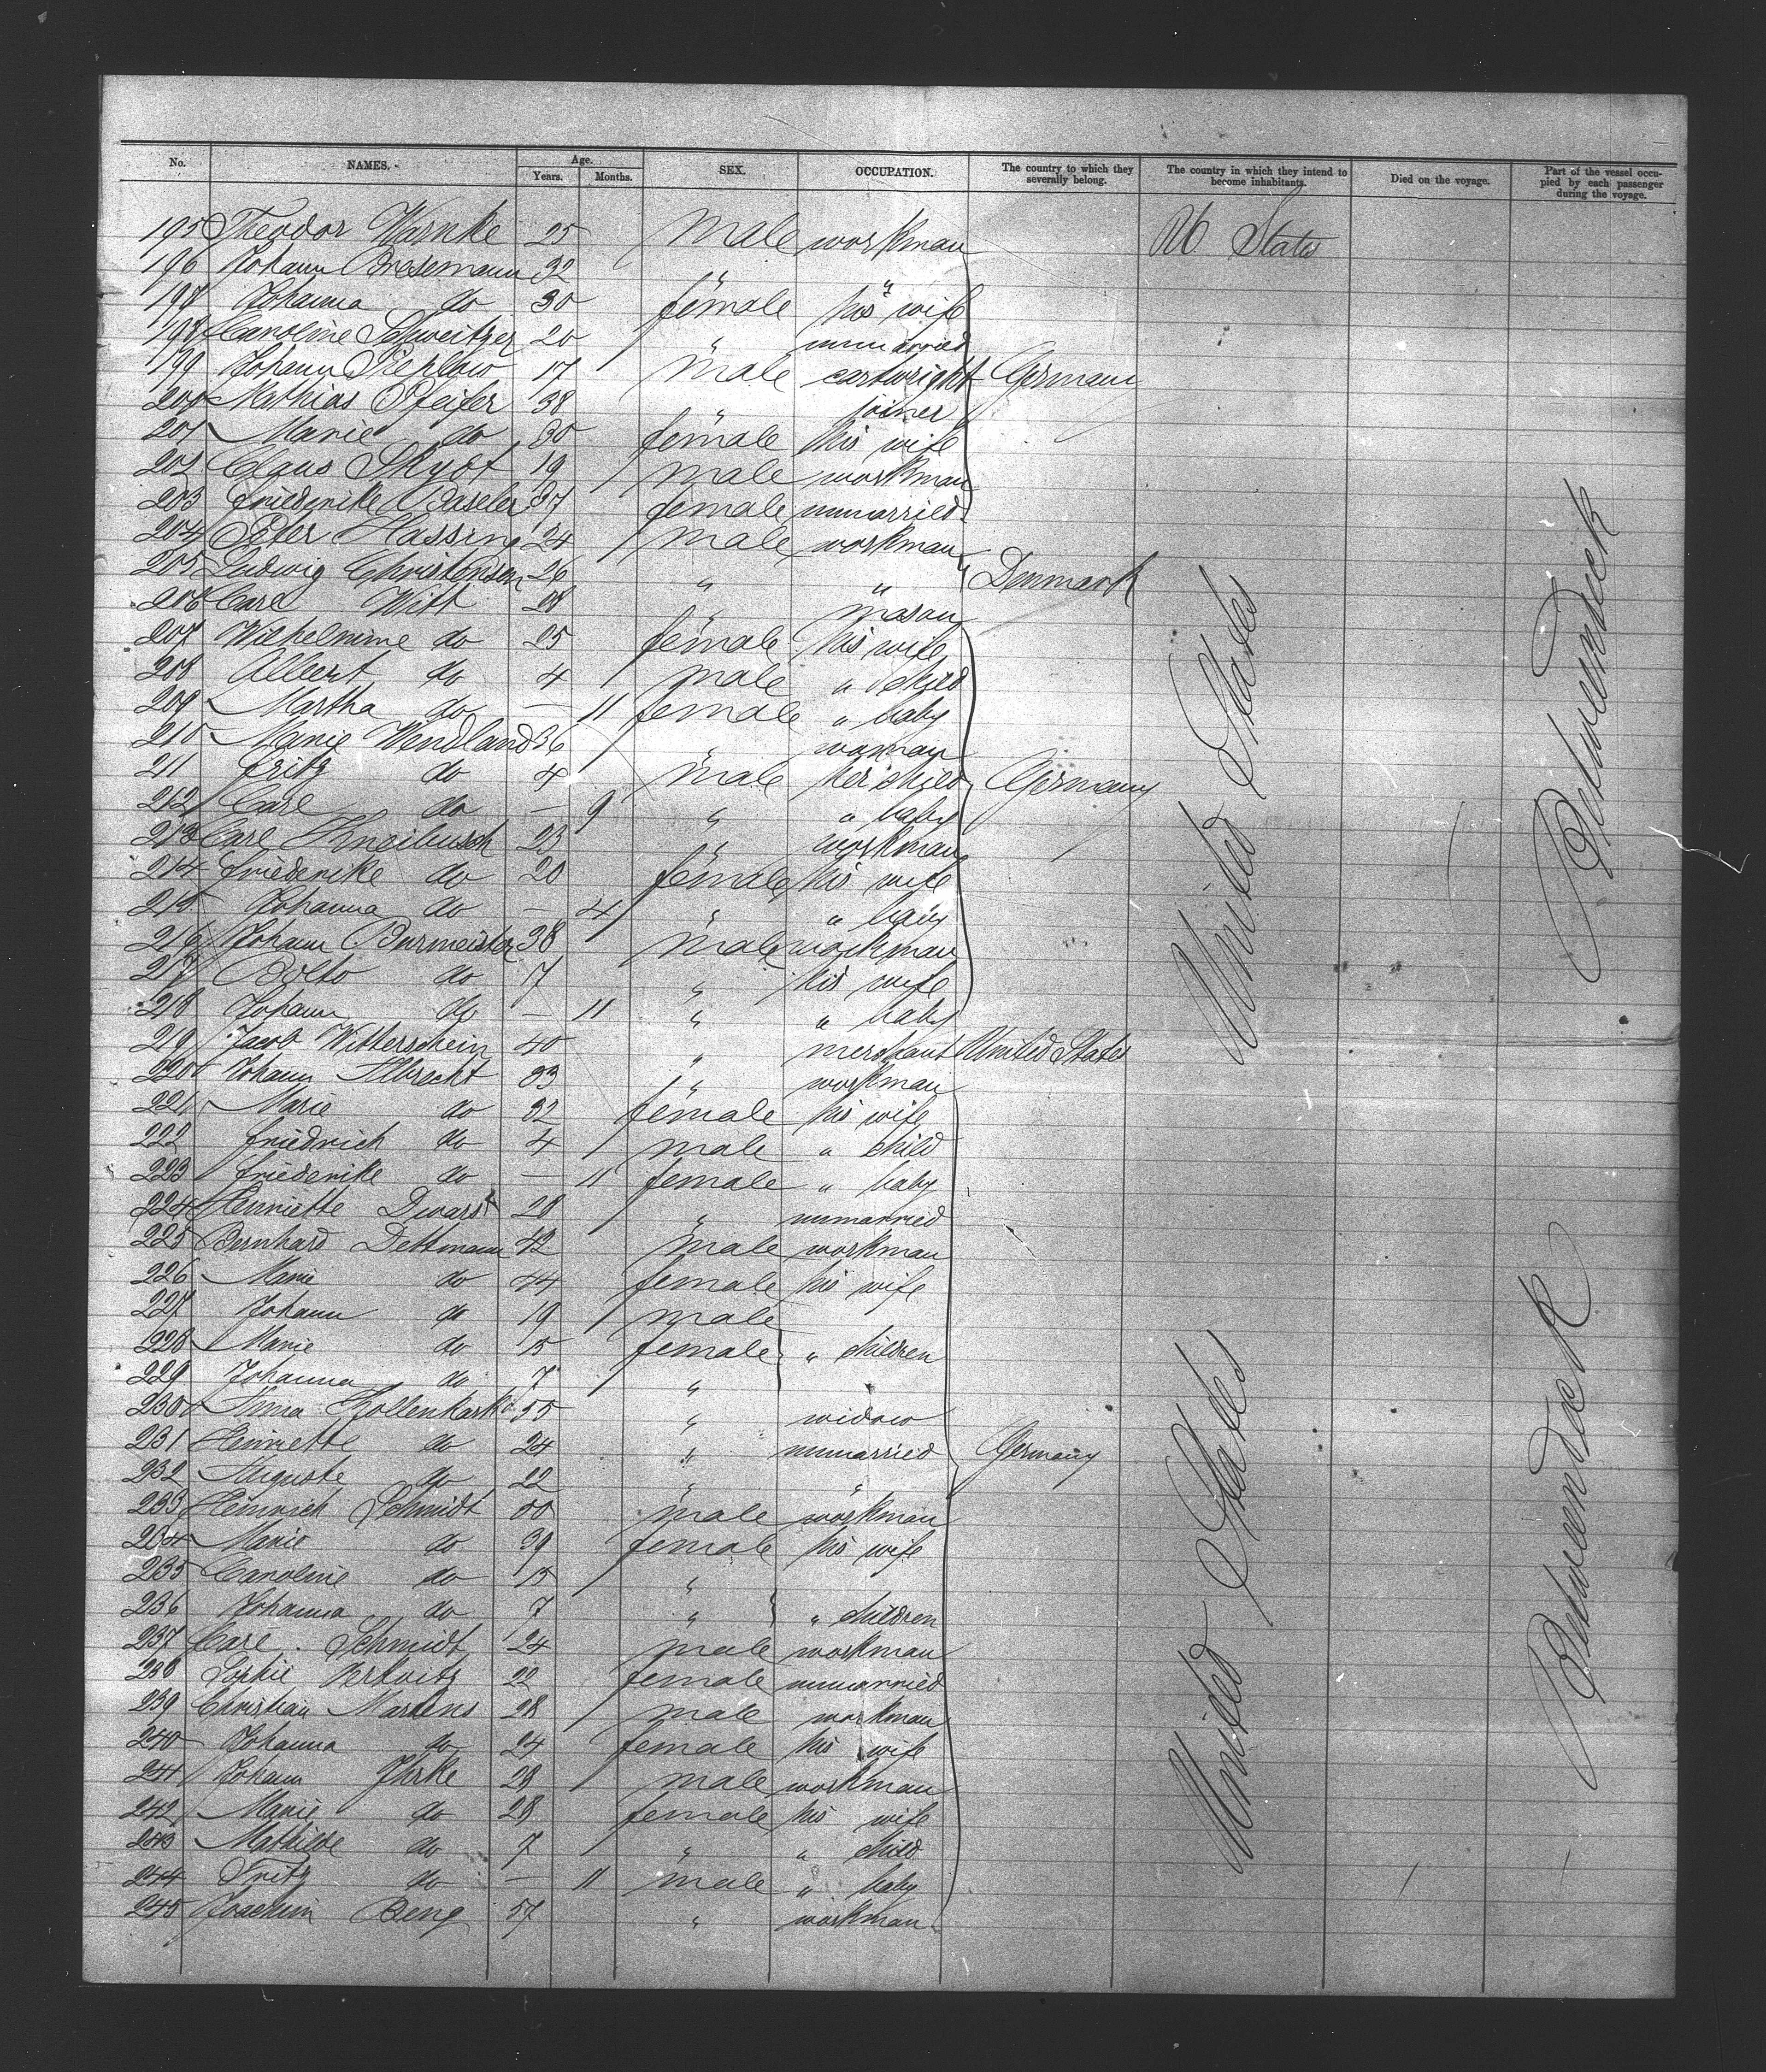 No. NAMES. Age. Years. Months. SEX. OCCUPATION. The country to which they severally belong. The country in which they intend to become inhabitants. Died on the voyage. Part of the vessel occupied by each passenger during the voyage.
195 Theodor Warnke 25 male workman U States
196 Johann Bresemann 32 " "
197 Johanna do 30 female his wife
198 Caroline Schweitzer 20 " unmarried
199 Johann Pieplow 17 male cartwright Germany
200 Mathias Pfeifer 38 " joiner
201 Marie do 30 female his wife
202 Claus Skydt 19 male workman
203 Friederike Baseler 37 female unmarried
204 Peter Hassing 24 male workman
205 Ludwig Christensen 26 " " Denmark
206 Carl Witt 28 mason
207 Wilhelmine do 25 female his wife
208 Albert do 4 male " child
209 Martha do — 11 female " baby
210 Marie Wendland 36 " woman
211 Fritz do 4 male her child Germany
212 Carl do — 9 " " baby
213 Carl Kneibusch 23 " workman
214 Friederike do 20 female his wife
215 Johanna do — 4 " " baby
216 Johann Burmeister 38 male workman
217 do 7 " his wife
218 Johann do — 11 " " baby
219 Jacob Witterschein 40 " merchant United States
220 Johann Albrecht 33 " workman
221 Marie do 32 female his wife
222 Friedrich do 4 male " child
223 Friederike do — 11 female " baby
224 Henriette 28 " unmarried
225 Bernhard Dettmann 42 male workman
226 Marie do 44 female his wife
227 Johann do 19 male
228 Marie do 15 female " children
229 Johanna do 7 "
230 Anna 55 " widow
231 Henriette do 24 " unmarried Germany
232 Auguste do 22 " "
233 Heinrich Schmidt male workman
234 Marie do 39 female his wife
235 Caroline do 15 "
236 Johanna do 7 " " children
237 Carl Schmidt 24 male workman
238 Sophie 22 female unmarried
239 Christian Martens 28 male workman
240 Johanna do 24 female his wife
241 Johann 28 male workman
242 Marie do 28 female his wife
243 Mathilde do 7 " " child
244 Fritz do — 11 male " baby
245 Joachim Beng 57 " workman
United States
United States
Betweendeck
Betweendeck